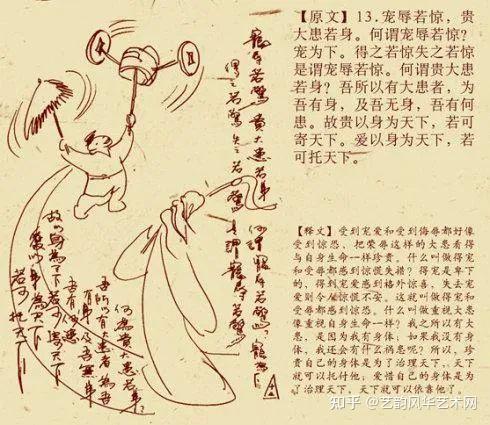 【原文】13.宠辱若惊，贵
大患若身。何谓宠辱若惊？
宠为下。得之若惊失之若惊
是谓宠辱若惊。何谓贵大患
若身？吾所以有大患者，为
吾有身，及吾无身，吾有何
患。故贵以身为天下，若可
寄天下。爱以身为天下，若
可托天下。
【释文】受到宠爱和受到侮辱都好像
受到惊恐，把荣辱这样的大患看得
与自身生命一样珍贵。什么叫做得宠
和受辱都感到惊慌失措？得宠是卑下
的，得到宠爱感到格外惊喜，失去宠
爱则令人惊慌不安。这就叫做得宠
和受辱都感到惊恐。什么叫做重视大患
像重视自身生命一样？我之所以有大
患，是因为我有身体；如果我没有身
体，我还会有什么祸患呢？所以，珍
贵自己的身体是为了治理天下，天下
就可以托付他；爱惜自己的身体是为
了治理天下，天下就可以依靠他了。
宠辱若惊 贵大患若身
得之若惊 失之若惊
是谓宠辱若惊
何谓宠辱若惊 宠为下
何谓贵大患若身
吾所以有大患者 为吾
有身 及吾无身
吾有何患
故贵以身为天下 若可寄天下
爱以身为天下
若可托天下
知乎 @艺韵风华艺术网